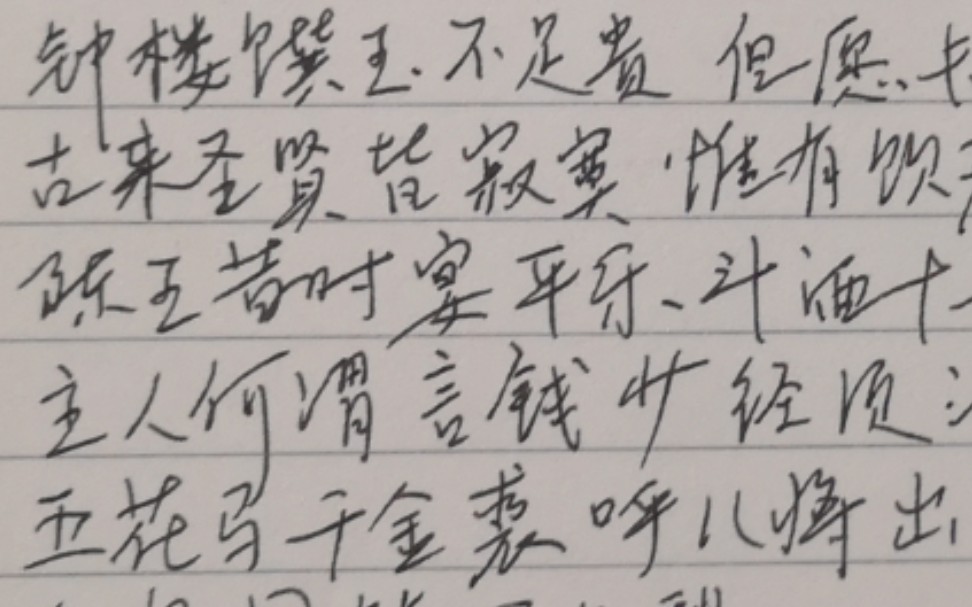 钟楼馔玉不足贵 但愿
古来圣贤皆寂寞 惟有饮
陈王昔时宴平乐、斗酒十
主人何谓言钱少 经须
五花马千金裘 呼儿将出